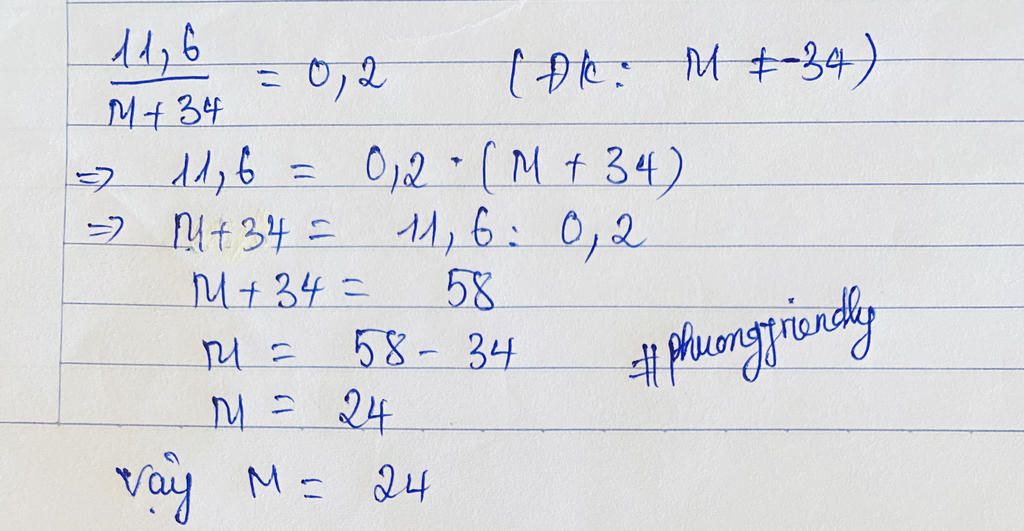 11,6 / M + 34 = 0,2 (ĐK: M ≠ -34)
=> 11,6 = 0,2 · (M + 34)
=> M + 34 = 11,6 : 0,2
M + 34 = 58
M = 58 - 34
#phuongfriendly
M = 24
Vậy M = 24